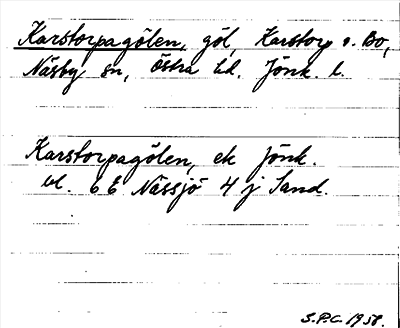 Karstorpagölen, göl, Karstorp o. Bo,
Näsby sn, Östra hd. Jönk. l.
Karstorpagölen, ek Jönk.
bl. 6 E Nässjö 4 j Sand.
S.P.C. 1958.